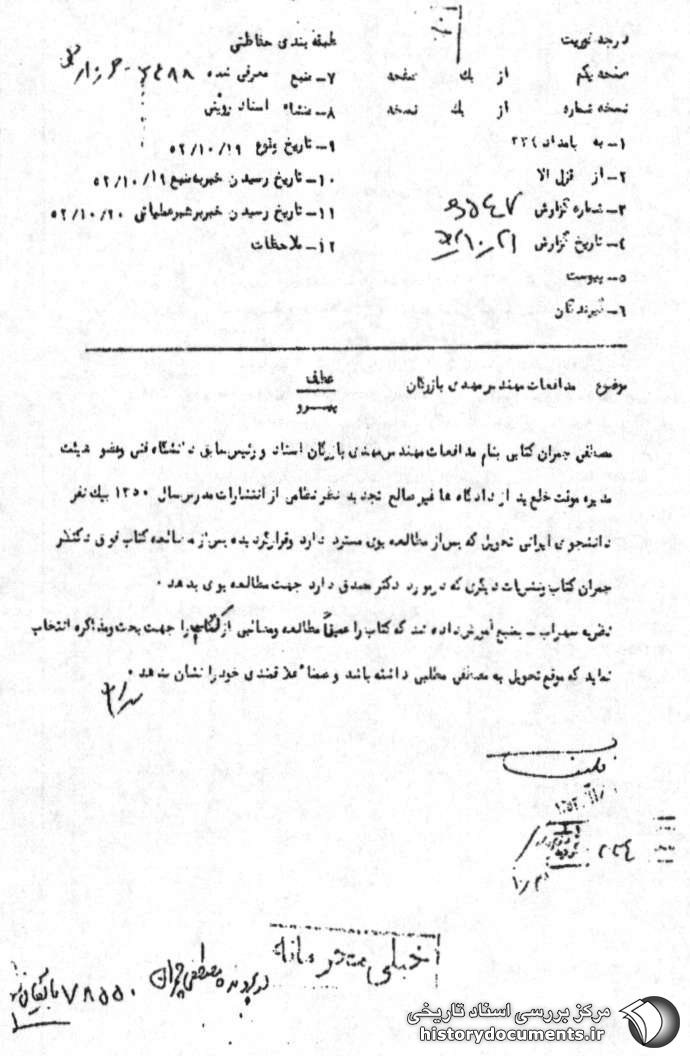 درجه فوریت
طبقه بندی حفاظتی
صفحه یکم از یک صفحه
نسخه شماره از یک نسخه
۱- به بامداد ۳۳۴
۲- از قزل الا
۳- شماره گزارش
۴- تاریخ گزارش
۵- پیوست
۶- گیرندگان
۷- منبع معرفی شده
۸- منشاء اسناد رویتی
۹- تاریخ وقوع ۵۲/۱۰/۱۹
۱۰- تاریخ رسیدن خبر به منبع ۵۲/۱۰/۱۹
۱۱- تاریخ رسیدن خبر برهبر عملیاتی ۵۲/۱۰/۲۰
۱۲- ملاحظات
موضوع مدافعات مهندس مهدی بازرگان
عطف
پیرو
مصطفی چمران کتابی بنام مدافعات مهندس مهدی بازرگان استاد و رئیس سابق دانشگاه فنی وعضو هیئت
مدیره موقت خلع ید از دادگاه ها غیر صالح تجدید نظر نظامی از انتشارات مدرس سال ۱۳۵۰ بیک نفر
دانشجوی ایرانی تحویل که پس از مطالعه بوی مسترد دارد وقرارگردیده پس از مطالعه کتاب فوق دکتر
چمران کتاب ونشریات دیگری که در مورد دکتر مصدق دارد جهت مطالعه بوی بدهد ۰
نظریه سهراب - بمنبع آموزش داده شد که کتاب را عمیقاً مطالعه ومطالبی از کتاب را جهت بحث ومذاکره انتخاب
نماید که موقع تحویل به مصطفی مطلبی داشته باشد و ضمناً علاقمندی خود را نشان بدهد ۰
۳۳۴
خیلی محرمانه
در پرونده مصطفی چمران
۷۸۵۵۰ بایگانی شود
مرکز بررسی اسناد تاریخی
historydocuments.ir